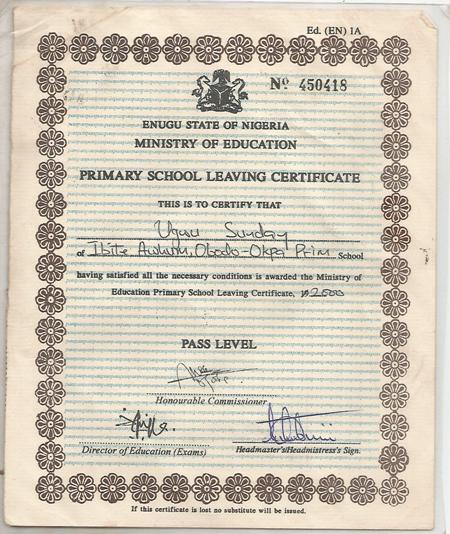 Ed. (EN) 1A
Nº 450418
ENUGU STATE OF NIGERIA
MINISTRY OF EDUCATION
PRIMARY SCHOOL LEAVING CERTIFICATE
THIS IS TO CERTIFY THAT
Ugwu Sunday
of Ibite Awhum, Obodo-Okpa Prim School
having satisfied all the necessary conditions is awarded the Ministry of
Education Primary School Leaving Certificate,
PASS LEVEL
Honourable Commissioner
Director of Education (Exams)
Headmaster's/Headmistress's Sign.
If this certificate is lost no substitute will be issued.